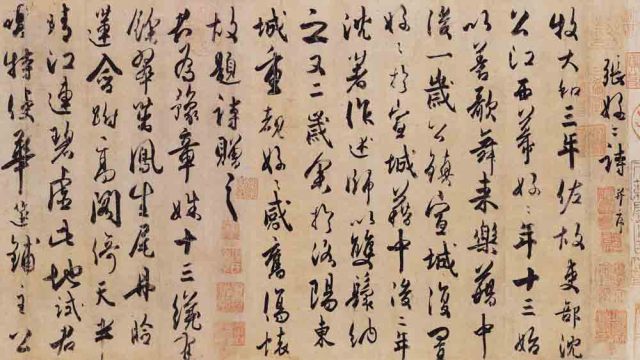 張好〻詩 并序
牧大和三年佐故吏部沈
公江西幕好〻年十三始
以善歌舞來樂籍中
後一歲公鎮宣城復置
好〻於宣城籍中後二年
沈著作述師以雙鬟納
之又二歲余於洛陽東
城重覩好〻感舊傷懷
故題詩贈之
君為豫章姝十三纔有
餘翠茁鳳生尾丹臉
蓮含跗高閣倚天半
晴江連碧虛此地試君
唱特使華筵鋪主公